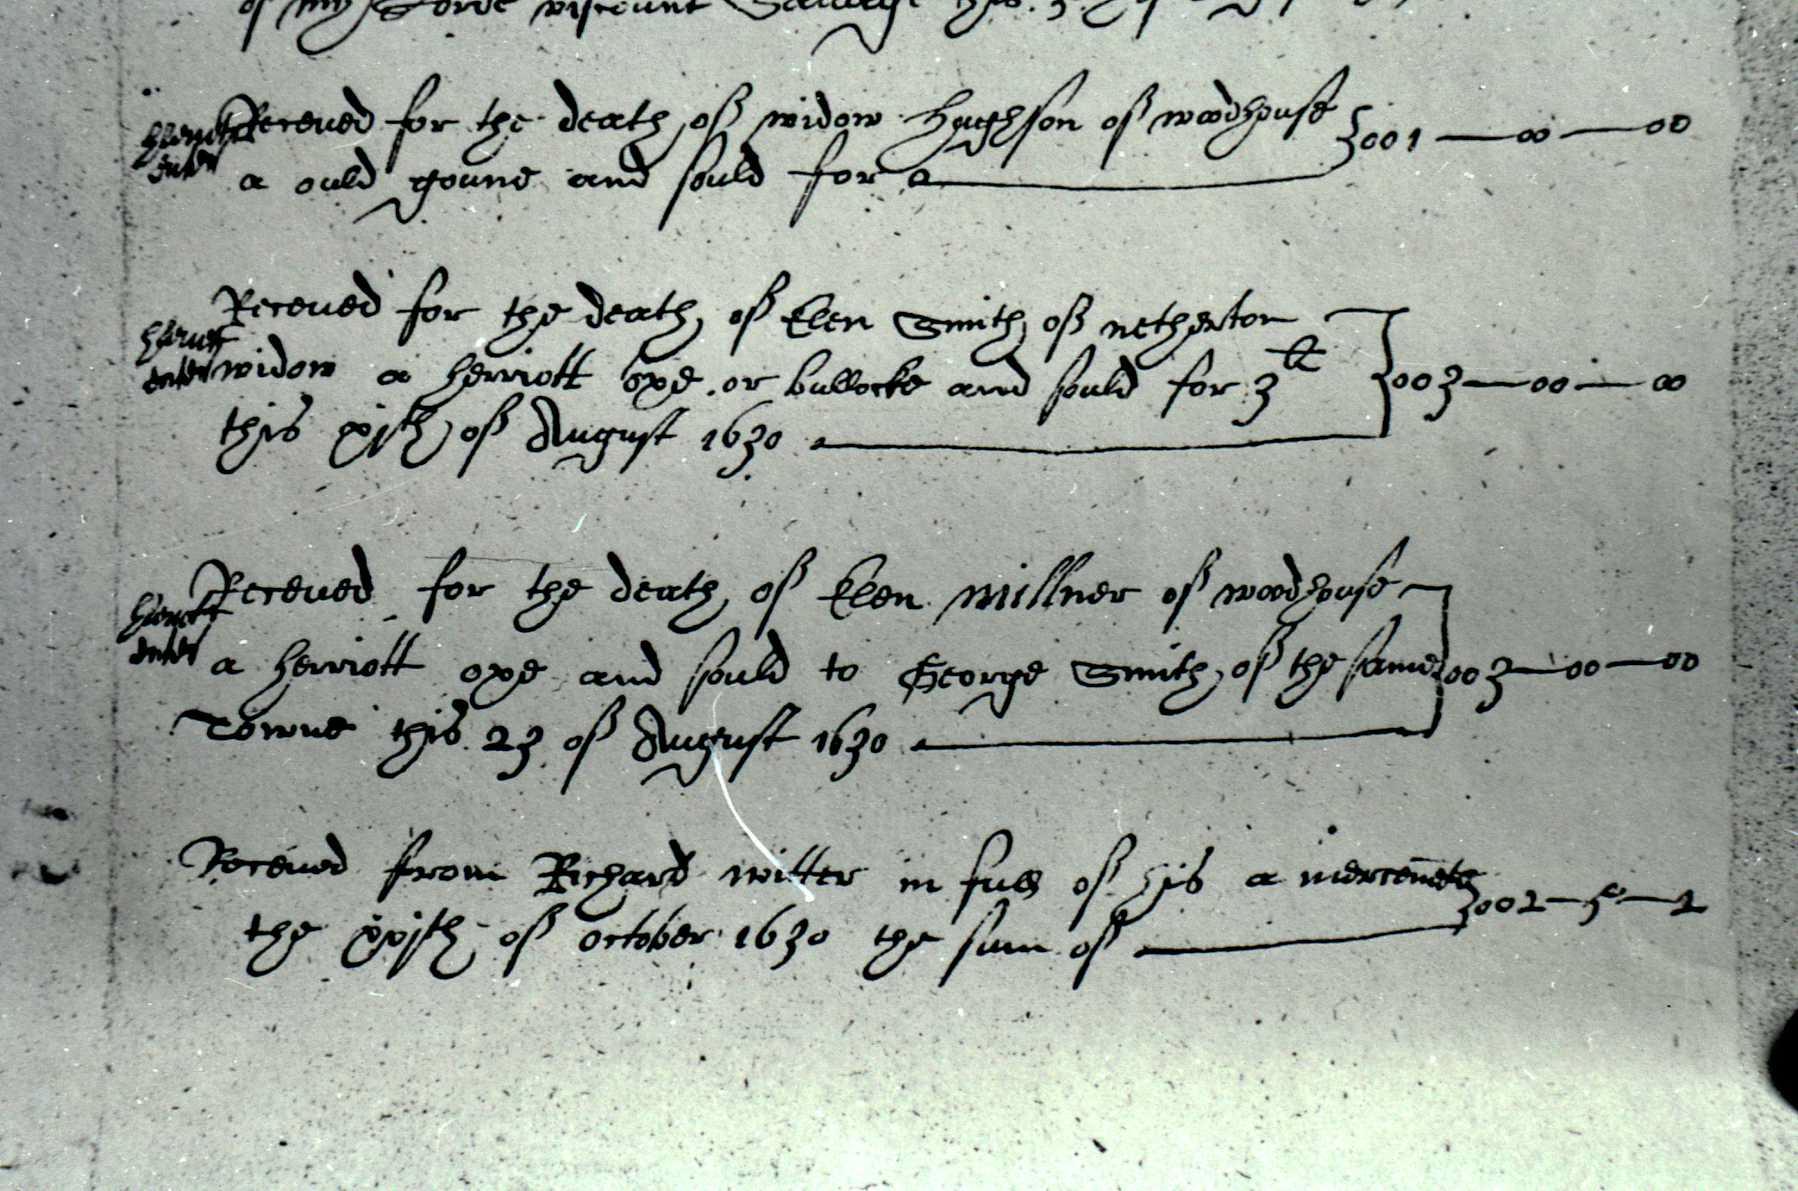 of my Lorde viscount Savage this
Receued for the death of widow Hughson of woodhouse
a ould goune and sould for 001 — 00 — 00
Receued for the death of Elen Smith of netherton
widow a herriott oxe or bullocke and sould for 3li 003 — 00 — 00
this xjth of August 1630
Receued for the death of Elen Millner of woodhouse
a herriott oxe and sould to George Smith of the same 003 — 00 — 00
Towne this 23 of August 1630
Receued from Richard witter in full of his a mercemete
the xxjth of october 1630 the sum of 002 — 5 — 2